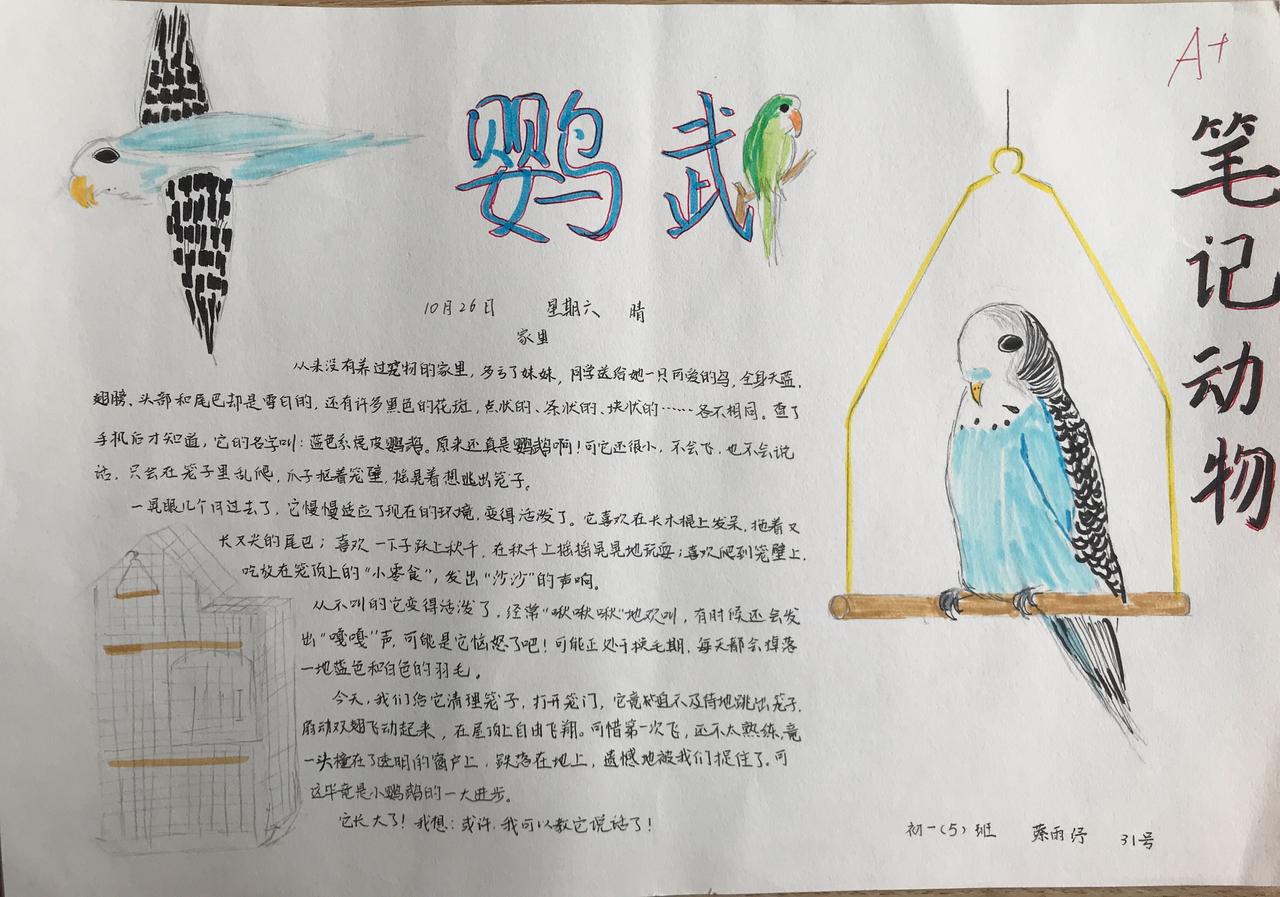 A+
笔记动物
鹦武
10月26日 星期六 晴
家里
从来没有养过宠物的家里，多亏了妹妹，同学送给她一只可爱的鸟，全身天蓝，
翅膀、头部和尾巴却是雪白的，还有许多黑色的花斑，点状的、条状的、块状的……各不相同。查了
手机后才知道，它的名字叫：蓝色系虎皮鹦鹉。原来还真是鹦鹉啊！可它还很小，不会飞，也不会说
话，只会在笼子里乱爬，爪子抠着笼壁，摇晃着想逃出笼子。
一晃眼几个月过去了，它慢慢适应了现在的环境，变得活泼了。它喜欢在长木棍上发呆，拖着又
长又尖的尾巴；喜欢一下子跃上秋千，在秋千上摇摇晃晃地玩耍；喜欢爬到笼壁上，
吃放在笼顶上的“小零食”，发出“沙沙”的声响。
从不叫的它变得活泼了，经常“啾啾啾”地欢叫，有时候还会发
出“嘎嘎”声，可能是它恼怒了吧！可能正处于换毛期，每天都会掉落
一地蓝色和白色的羽毛。
今天，我们给它清理笼子，打开笼门，它竟然迫不及待地跳出笼子，
扇动双翅飞动起来，在屋顶上自由飞翔。可惜第一次飞，还不太熟练，竟
一头撞在了透明的窗户上，跌落在地上，遗憾地被我们捉住了。可
这毕竟是小鹦鹉的一大进步。
它长大了！我想：或许，我可以教它说话了！
初一（5）班 蔡雨纾 31号